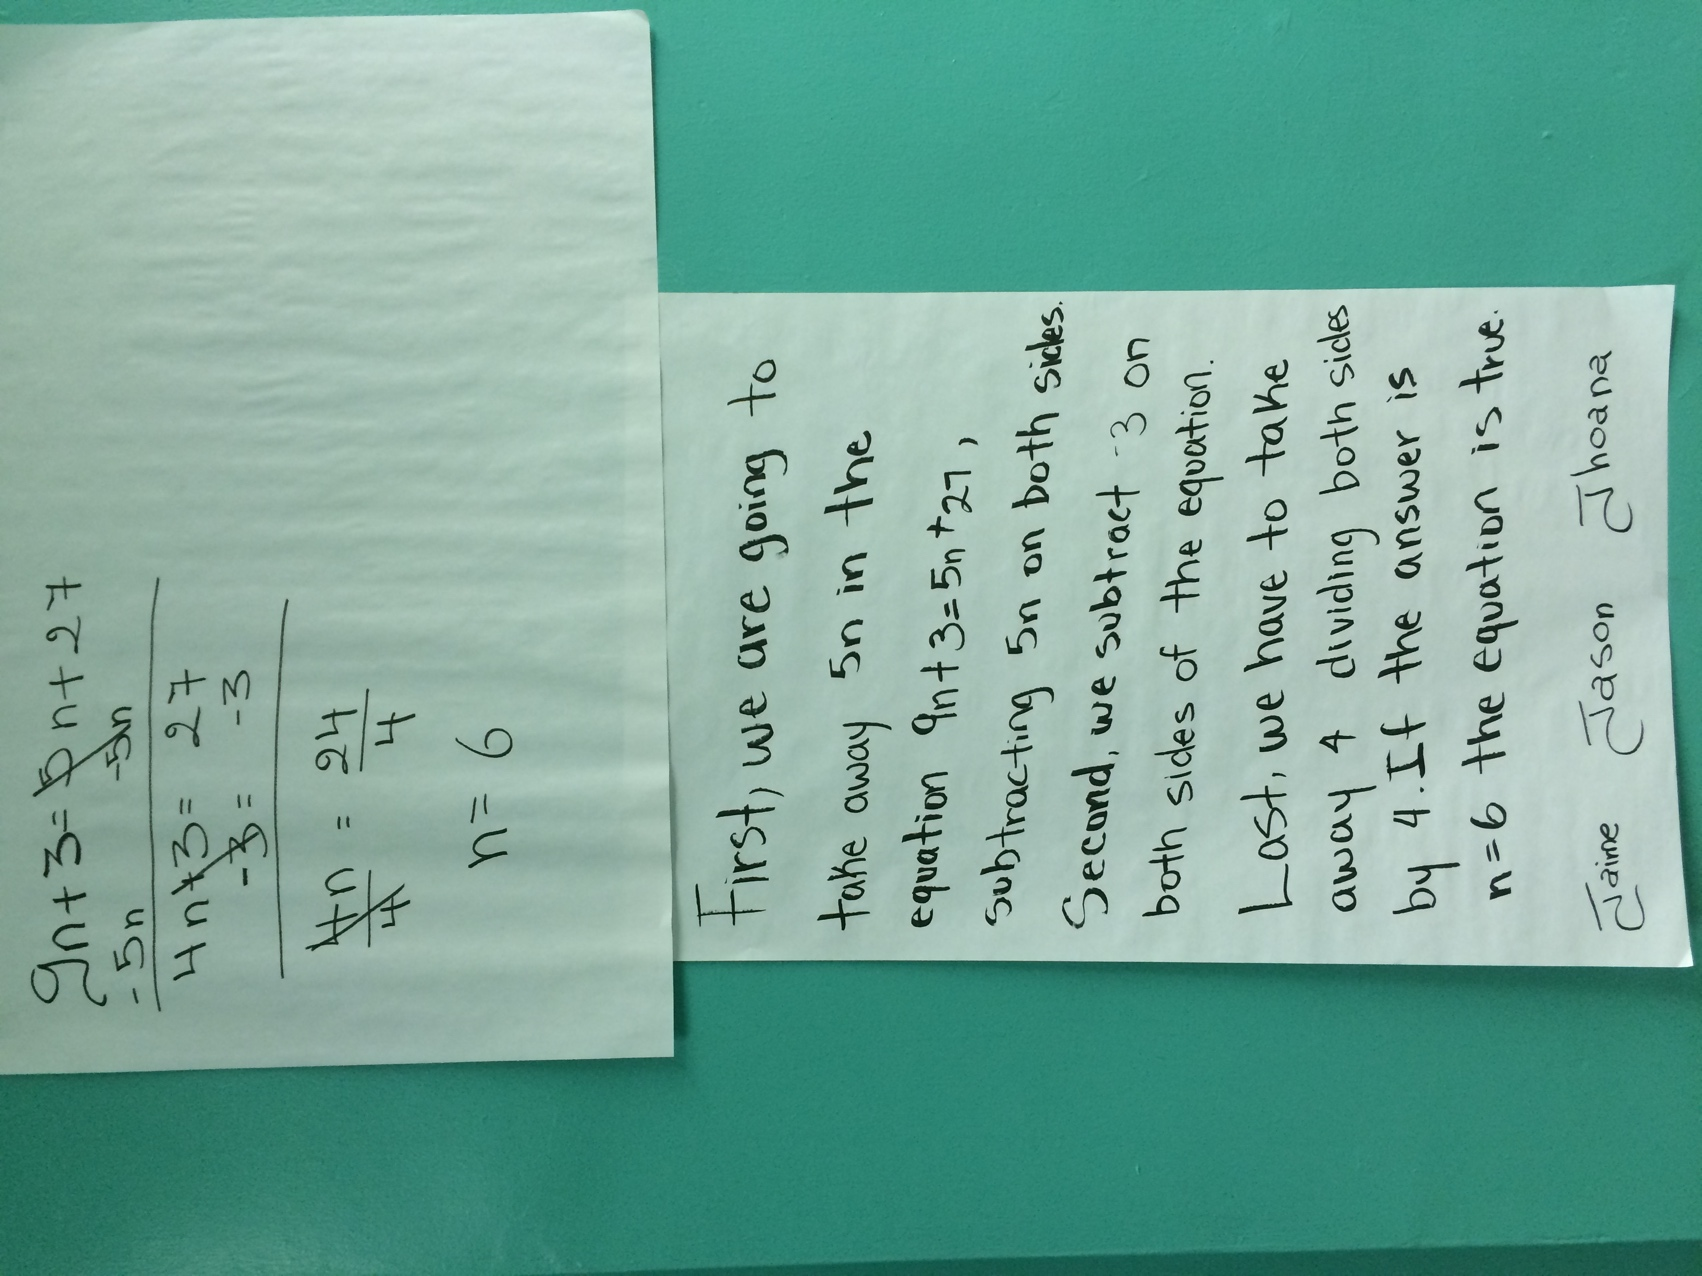 9n+3=5n+27
-5n -5n
4n+3= 27
-3= -3
4n = 24
4 4
n= 6
First, we are going to
take away 5n in the
equation 9n+3=5n+27,
subtracting 5n on both sides.
Second, we subtract -3 on
both sides of the equation.
Last, we have to take
away 4 dividing both sides
by 4. If the answer is
n=6 the equation is true.
Jaime Jason Jhoana